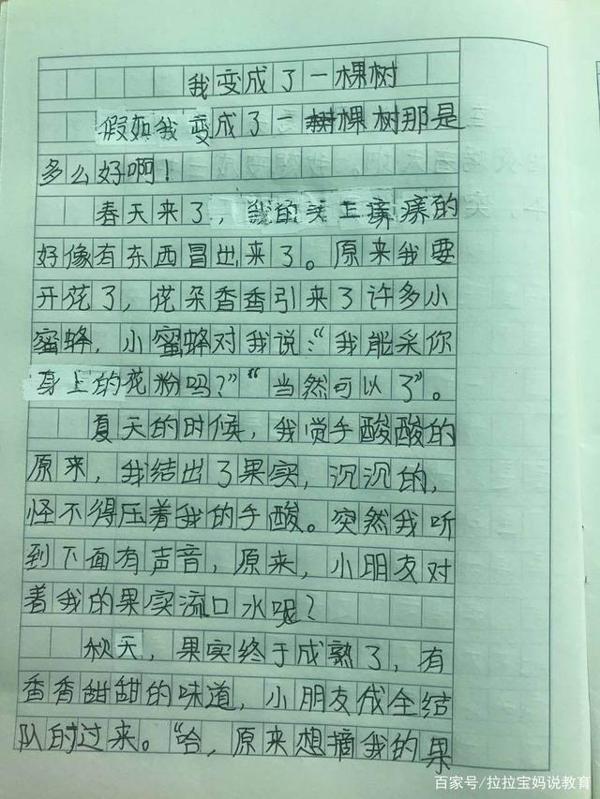 我变成了一棵树
假如我变成了一棵树那是
多么好啊！
春天来了，我的头上痒痒的
好像有东西冒出来了。原来我要
开花了，花朵香香引来了许多小
蜜蜂，小蜜蜂对我说：“我能采你
身上的花粉吗？”“当然可以了”。
夏天的时候，我觉手酸酸的
原来，我结出了果实，沉沉的，
怪不得压着我的手酸。突然我听
到下面有声音，原来，小朋友对
着我的果实流口水呢？
秋天，果实终于成熟了，有
香香甜甜的味道，小朋友成全结
队的过来。“哈，原来想摘我的果
百家号/拉拉宝妈说教育